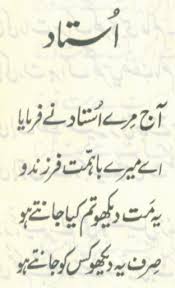 اُستاد
آج مِرے اُستاد نے فرمایا
اے میرے باہمّت فرزندو
یہ مَت دیکھو تم کیا جانتے ہو
صِرف یہ دیکھو کس کو جانتے ہو